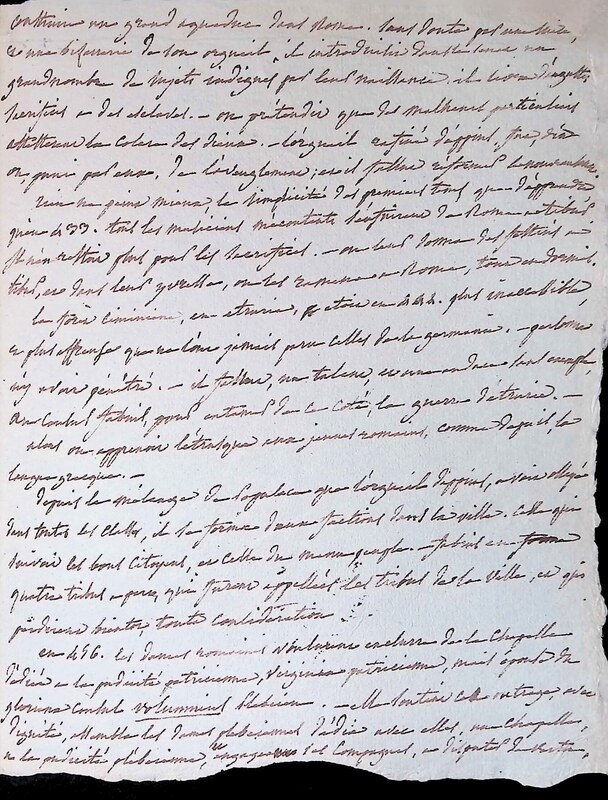 construire un grand aqueduc dans Rome. sans doute par une suite,
et une bizarrerie de son orgueil, il introduisit dans le senat un
grand nombre de sujets indignes par leur naissance, il livra d'augustes
sacrifices a des esclaves. - on prétendit que des malheurs particuliers
attesterent la colere des dieux. - l'orgueil d'appius, fut, dit
on, puni par eux, de l'aveuglement; et il fallut reformer le nouveau senat.
rien ne peint mieux, la simplicité des premiers tems que
433. tous les musiciens mécontents s'enfuirent de Rome a tibur
il n'en restoit plus pour les sacrifices. - on leur donna des festins a
tibur, et dans leur yvresse, on les ramena a Rome, tous endormis.
la forêt ciminiene, en etrurie, etoit en 444. plus inaccessible,
et plus affreuse que ne l'ont jamais paru celles de la germanie. - personne
n'y avoit pénétré. - il fallut, un talent, et une audace sans exemple
au consul fabius, pour entamer de ce coté, la guerre d'etrurie. -
alors on apprenoit l'etrusque aux jeunes romains, comme depuis, la
langue grecque. -
depuis le mélange de la populace que l'orgueil d'appius, avoit
dans toutes les classes, il se forma deux factions dans la ville. celle que
suivoit les bons citoyens, et celle du menu peuple. - fabius en forma
quatre tribus a part, qui furent appellées les tribus de la ville, et qui
perdirent bientot, toute consideration
en 456. les dames romaines voulurent exclure de la chapelle
dédiée a la pudicité patricienne, virginia patricienne, mais epouse du
glorieux consul volumnius plebeien. - elle soutint cet outrage, avec
dignité, assembla les dames plebeiennes dédia avec elles, une chapelle,
a la pudicité plebeienne, engagea ses compagnes, a disputer de vertu,